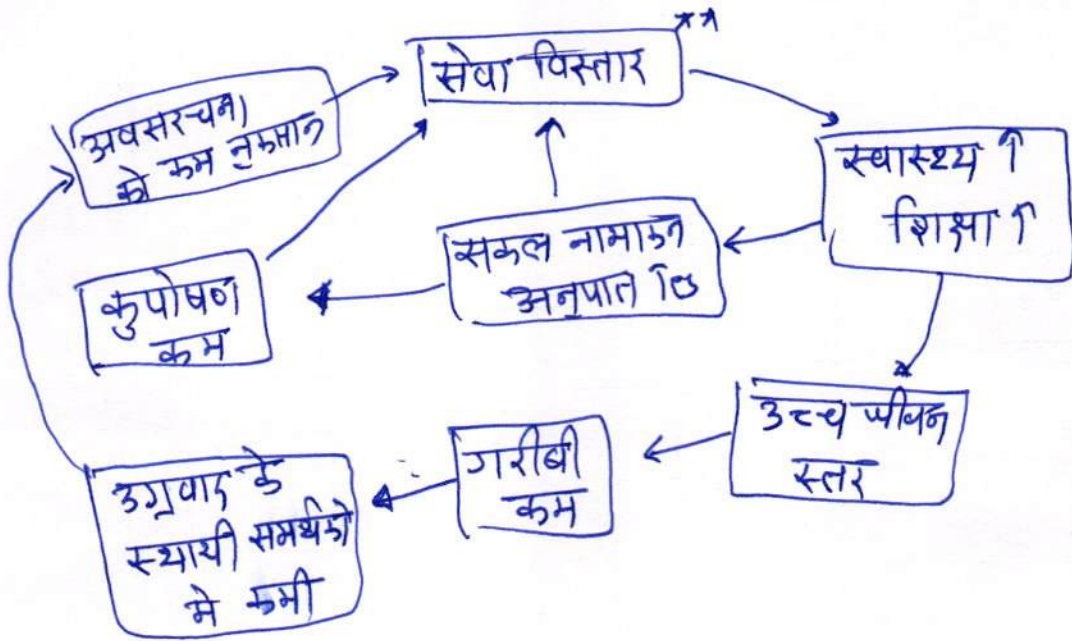 सेवा विस्तार **
अवसरचना
को कम नुकसान
स्वास्थ्य ↑
शिक्षा ↑
सकल नामांकन
अनुपात ↑
कुपोषण
कम
उच्च जीवन
स्तर
गरीबी
कम
उग्रवाद के
स्थायी समर्थको
मे कमी